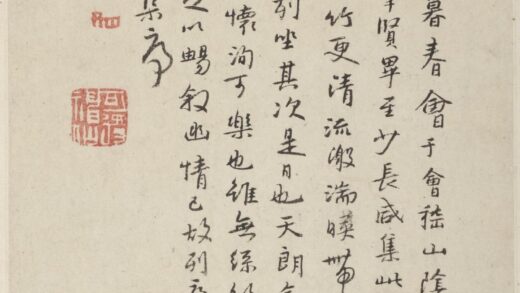 暮春會于會嵇山陰
賢畢至少長咸集此
竹更清流激湍暎帶
列坐其次是日也天朗
懷洵可樂也雖無絲
以暢敘幽情已故列
集序